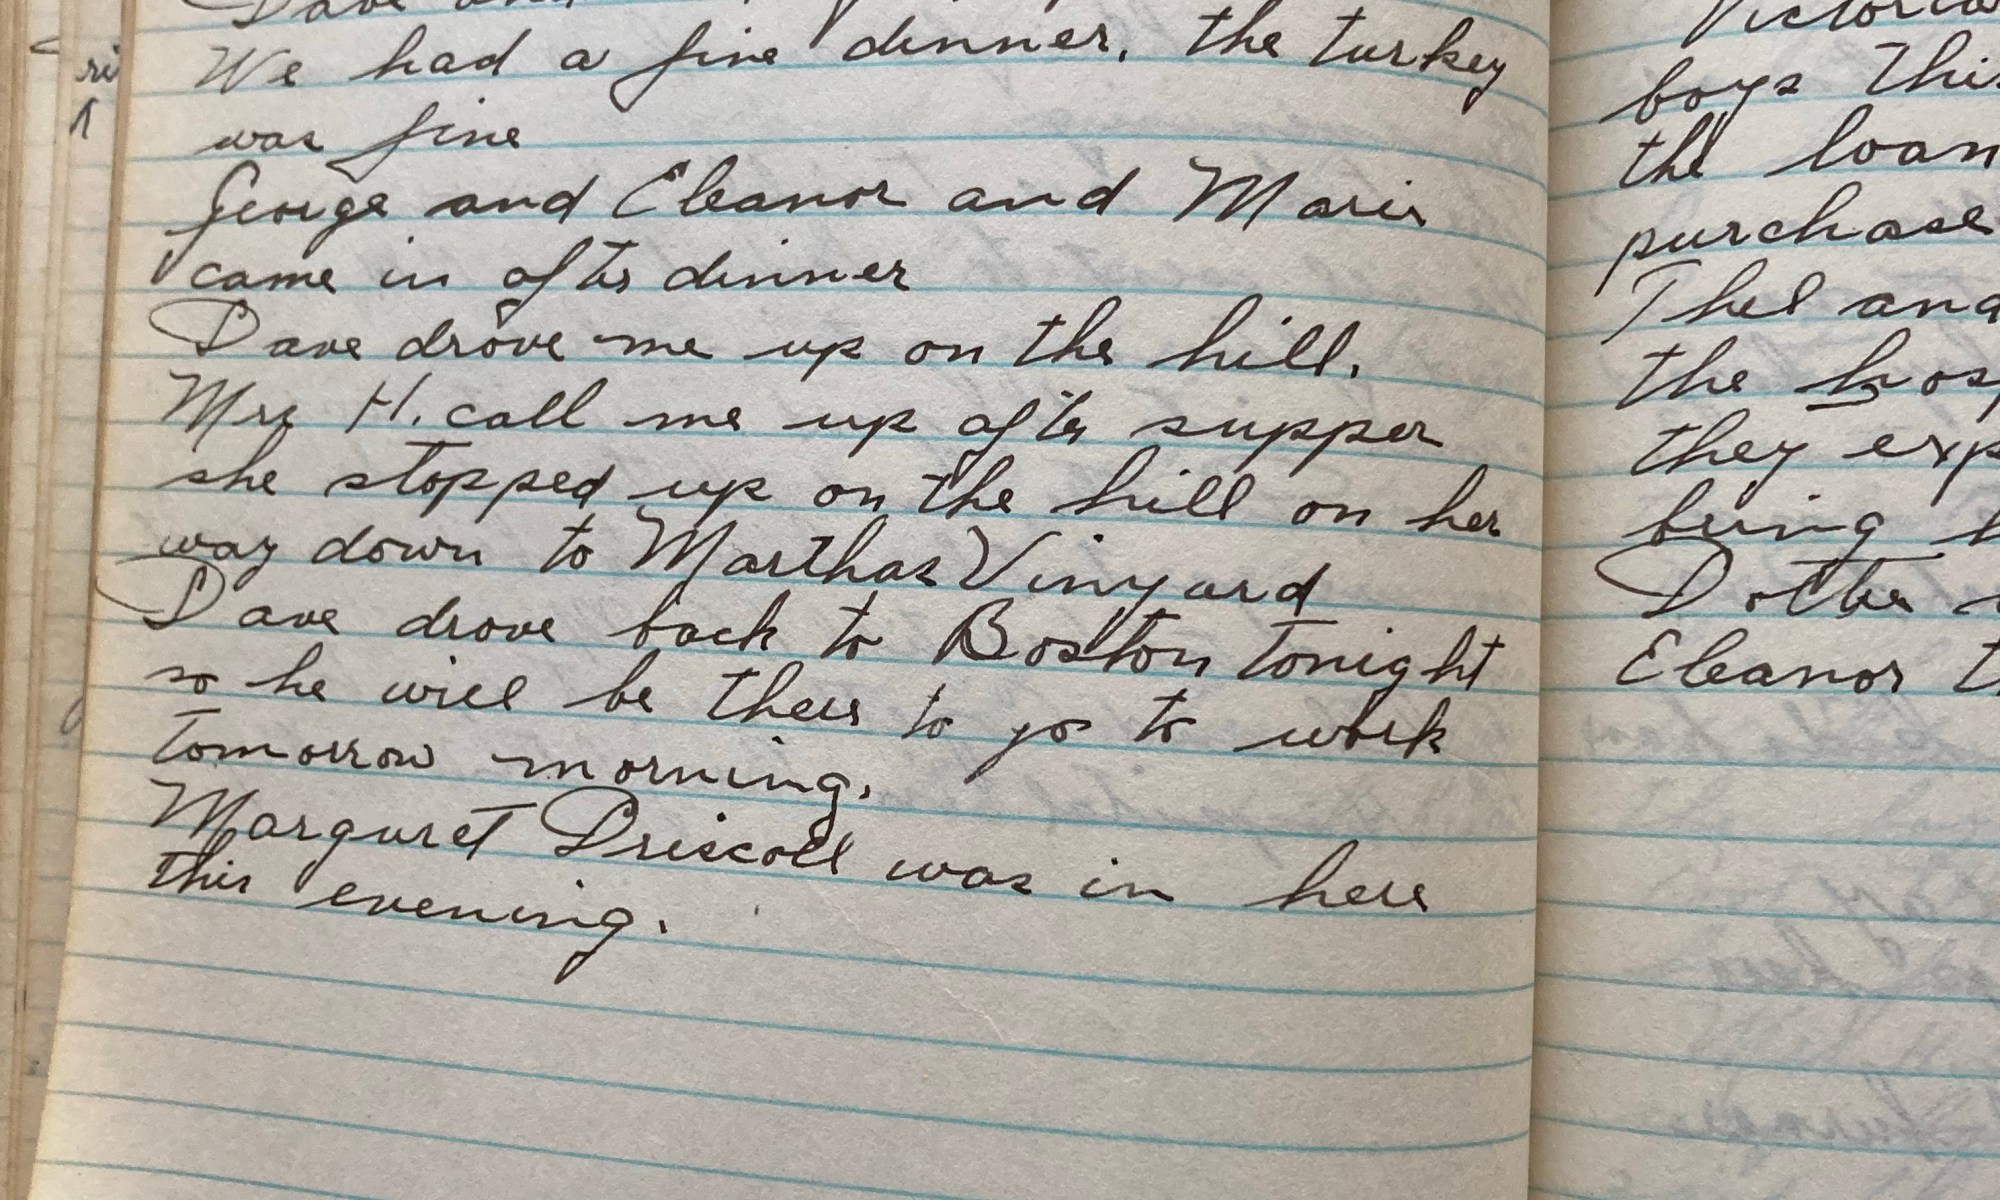 Dave and
We had a fine dinner. the turkey
was fine
George and Eleanor and Marie
came in after dinner
Dave drove me up on the hill.
Mrs H. call me up after supper
she stopped up on the hill on her
way down to Marthas Vinyard
Dave drove back to Boston tonight
so he will be there to go to work
tomorrow morning.
Margaret Driscoll was in here
this evening.
boys this
the loan
purchase
Thel and
the
they
being
Eleanor